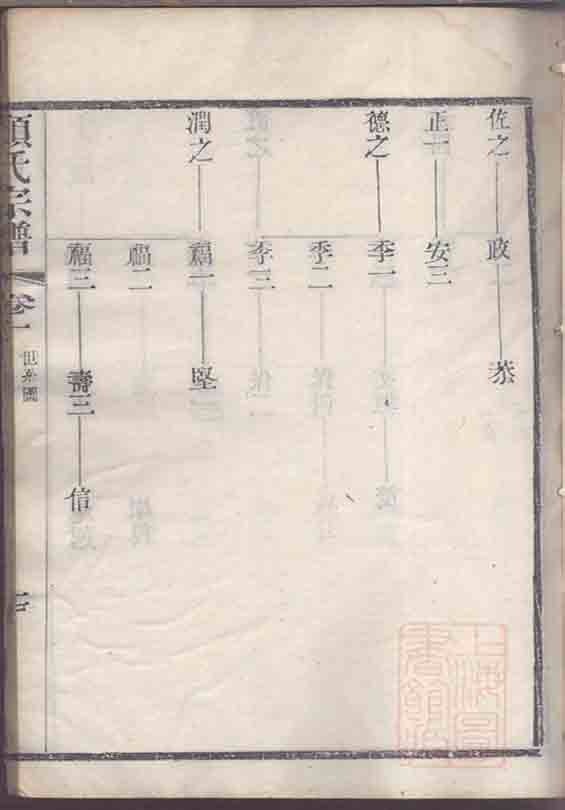 佐之 政 恭
正十 安三
德之 季一
季二
季三
潤之 福一 堅
福二
福三 壽三 信
氏宗譜
卷一
世系圖
上海圖書館藏